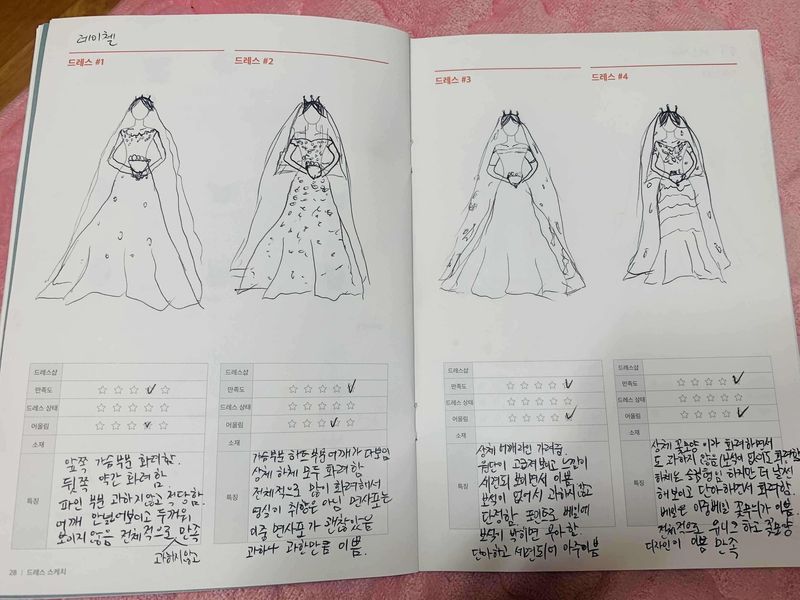 레이첼
드레스 #1
드레스샵
만족도 ☆☆☆☆☆
드레스 상태 ☆☆☆☆☆
어울림 ☆☆☆☆☆
소재
특징
앞쪽 가슴부분 화려함.
뒷쪽 약간 화려함.
파인 부분 과하지않고 적당함.
어깨 안넓어보이고 두꺼워
보이지않음 전체적으로 만족
과하지않고
드레스 #2
드레스샵
만족도 ☆☆☆☆☆
드레스 상태 ☆☆☆☆☆
어울림 ☆☆☆☆☆
소재
특징
가슴부분 하트 어깨가 다보임
상체 하체 모두 화려함
전체적으로 많이 화려해서
취향은 아님 면사포는
이중 면사포가 괜찮았음
과하나 과한만큼 이쁨.
드레스 #3
드레스샵
만족도 ☆☆☆☆☆
드레스 상태 ☆☆☆☆☆
어울림 ☆☆☆☆☆
소재
특징
상체 어깨라인 가려줌.
원단이 고급져보이고 느낌이
세련되보이면서 이쁨
보석이 없어서 과하지않고
단정함. 포인트로 베일에
보석이 박히면 우아함.
단아하고 세련되며 아주이쁨
드레스 #4
드레스샵
만족도 ☆☆☆☆☆
드레스 상태 ☆☆☆☆☆
어울림 ☆☆☆☆☆
소재
특징
상체 꽃모양이라 화려하면서
도 과하지 않음 (보석이 없어도 화려함
하체는 슬림함 하지만 더 날씬
해보이고 단아하면서 화려함.
베일은 꽃무늬가 이쁨.
전체적으로 유니크 하고 꽃모양
디자인이 이쁨 만족
28 | 드레스 스케치